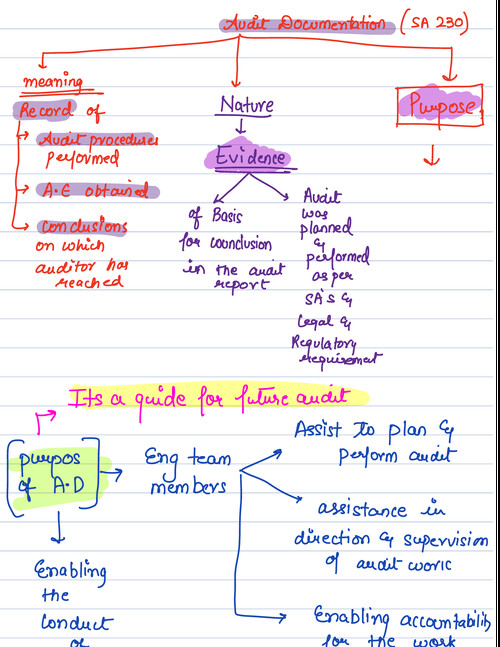 Audit Documentation (SA 230)
meaning
Record of
Audit procedures
performed
A.E obtained
Conclusions
on which
auditor has
reached
Nature
Evidence
of Basis
for counclusion
in the audit
report
Audit
was
planned
&
performed
as per
SA's &
Legal &
Regulatory
requirement
Purpose
Its a guide for future audit
purpos
of A.D
Eng team
members
Assist To plan &
perform audit
assistance in
direction & supervision
of audit work
Enabling accountability
for the work
Enabling
the
conduct
of